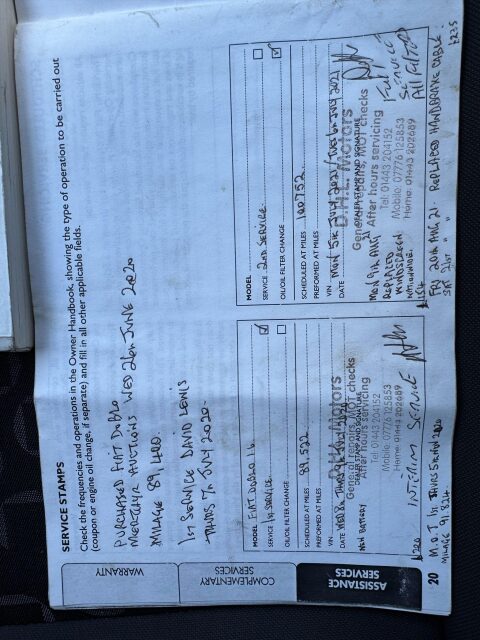 SERVICE STAMPS
Check the frequencies and operations in the Owner Handbook, showing the type of operation to be carried out
(coupon or engine oil change, if separate) and fill in all other applicable fields.
PURCHASED FIAT DOBLO
MERTHYR AUCTIONS WED 26th JUNE 2020
MILAGE 89,400.
1st SERVICE DAVID LEWIS
-THURS 7th JULY 2020-
MODEL FIAT DOBLO 1.6
SERVICE 1st SERVICE
OIL/OIL FILTER CHANGE
SCHEDULED AT MILES 89,522
PREFORMED AT MILES
VIN
DATE
D.H.L Motors
General repairs, MOT checks
DEALER STAMP AND SIGNATURE
After hours servicing
Tel: 01443 204152
Mobile: 07776 125853
Home: 01443 202689
NEW BATTERY
£200 INTERIM SERVICE
MODEL
SERVICE 2nd SERVICE
OIL/OIL FILTER CHANGE
SCHEDULED AT MILES 100752
PREFORMED AT MILES
VIN
DATE MON 5th JULY 2021/TUES 6th JULY 2021
D.H.L Motors
General repairs, MOT checks
After hours servicing
Tel: 01443 204152
Mobile: 07776 125853
Home: 01443 202689
MON 9th AUG
21
REPLACED
WINDSCREEN
NATIONWIDE
FULL
SERVICE
All FILTERS
FRI 20th AUG 21. REPLACED HANDBRAKE CABLE.
SAT 21st " "
£235
20 M.O.T. THURS 5th NOV 2020
MILAGE 91824
WARRANTY
COMPLEMENTARY
SERVICES
ASSISTANCE
SERVICES